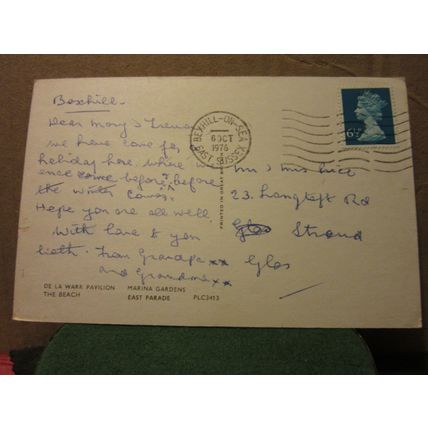 Bexhill.
Dear Mary & Trevor
we have come for
holiday here. where
ence come before before
the winter comes.
Hope you are all well
With love to you
both. From Grandpa xx
and Grandma xx
DE LA WARR PAVILION MARINA GARDENS
THE BEACH EAST PARADE PLC3413
PRINTED IN GREAT
BEXHILL-ON-SEA
6 OCT
1976
EAST SUSSEX
6½P
Mr & Mrs
23. Langtoft Rd
Glos Stroud
Glos